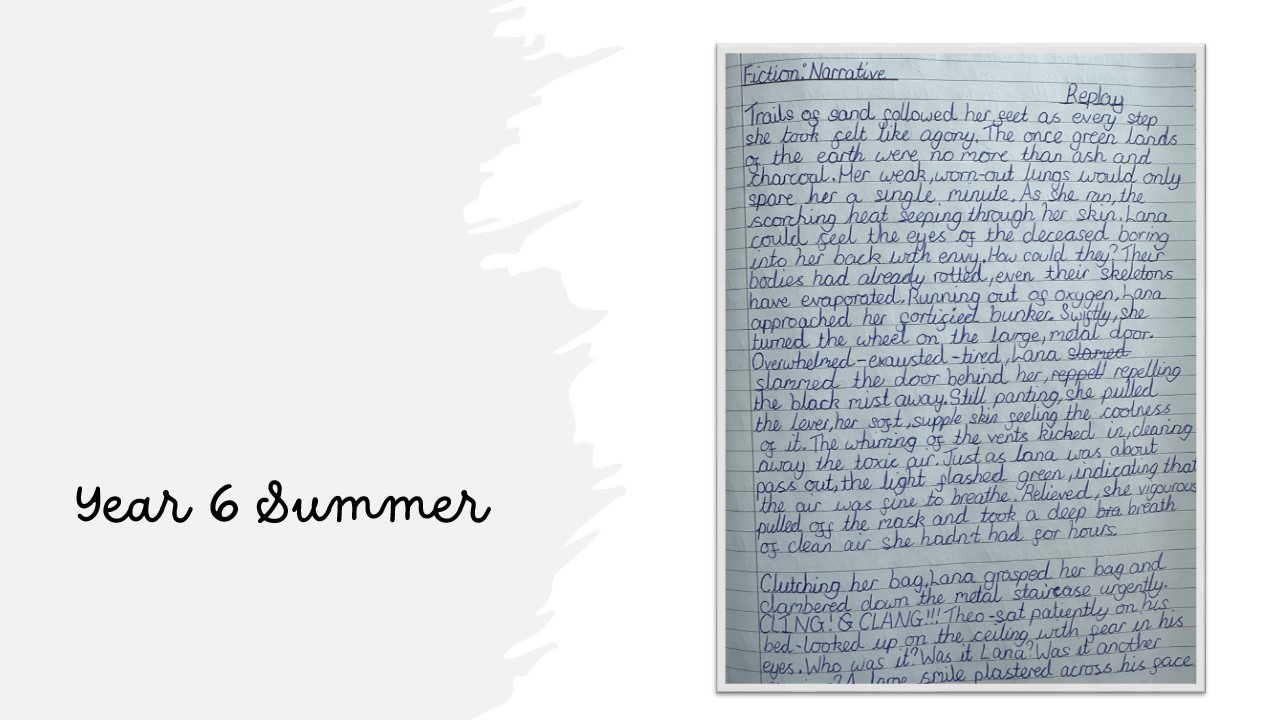 Year 6 Summer
Fiction: Narrative
Replay
Trails of sand followed her feet as every step
she took felt like agony. The once green lands
of the earth were no more than ash and
charcoal. Her weak, worn-out lungs would only
spare her a single minute. As she ran, the
scorching heat seeping through her skin. Lana
could feel the eyes of the deceased boring
into her back with envy. How could they? Their
bodies had already rotted, even their skeletons
have evaporated. Running out of oxygen, Lana
approached her fortified bunker. Swiftly, she
turned the wheel on the large, metal door.
Overwhelmed-exausted-tired, Lana slamed
slammed the door behind her, reppell repelling
the black mist away. Still panting, she pulled
the lever, her soft, supple skin feeling the coolness
of it. The whirring of the vents kicked in, clearing
away the toxic air. Just as Lana was about
pass out, the light flashed green, indicating that
the air was fine to breathe. Relieved, she vigourous
pulled off the mask and took a deep bra breath
of clean air she hadn't had for hours.
Clutching her bag, Lana grasped her bag and
clambered down the metal staircase urgently.
CLING! & CLANG!!! Theo-sat patiently on his
bed-looked up on the ceiling with fear in his
eyes. Who was it? Was it Lana? Was it another
? A large smile plastered across his face